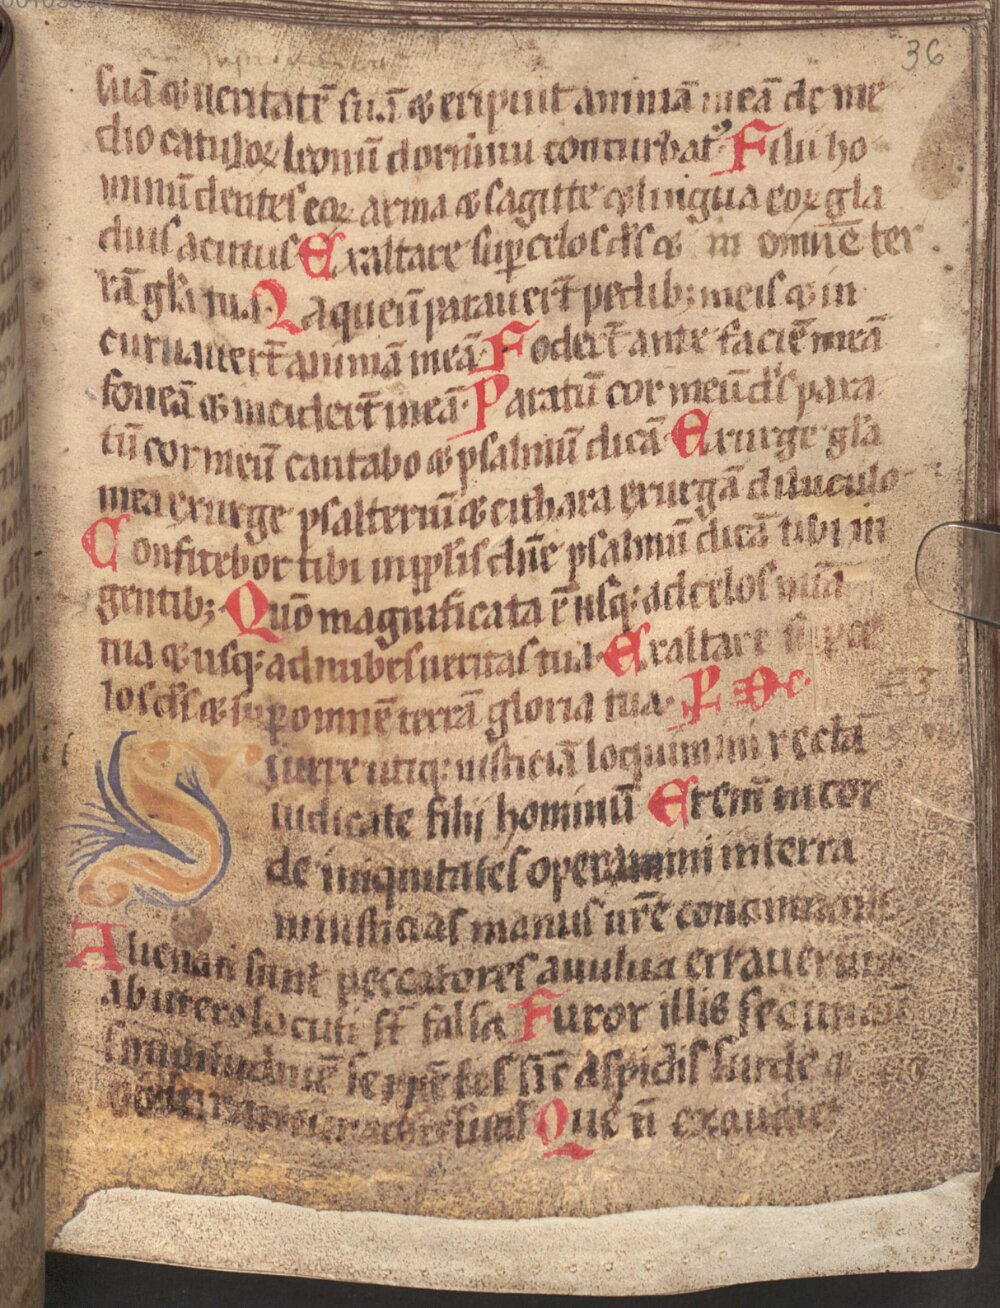 36
suā ⁊ ueritatē suā ⁊ eripuit animā meā de me
dio catuloꝝ leonū dormiui conturbatꝰ Filii ho
minū dentes eoꝝ arma ⁊ sagitte ⁊ lingua eoꝝ gla
dius acutus Exaltare suꝑ celos ds̄ ⁊ in omnē ter
rā gl̄a tua Laqueū parauert̄ pedib; meis ⁊ in
curuauert̄ animā meā Fodert̄ ante faciē meā
foueā ⁊ incidert̄ in eā Paratū cor meū ds̄ para
tū cor meū cantabo ⁊ psalmū dicā Exurge gl̄a
mea exurge psalteriū ⁊ cithara exurgā diluculo
Confitebor tibi in ppl̄is dn̄e psalmū dicā tibi in
gentib; Quō magnificata ē usq; ad celos mīa
tua ⁊ usq; ad nubes ueritas tua Exaltare super ce
los ds̄ ⁊ suꝑ omnē terrā gloria tua
Si uere utiq; iusticiā loquimini recta
iudicate filij hominū Etem̄ in cor
de iniquitates operamini in terra
iniusticias manus ur̄e concinnant
Alienati sunt peccatores a uulua errauerunt
ab utero locuti st̄ falsa Furor illis secundū
similitudinē serpētes sic̄ aspidis surde ⁊
aures suas Que n̄ exaudiet